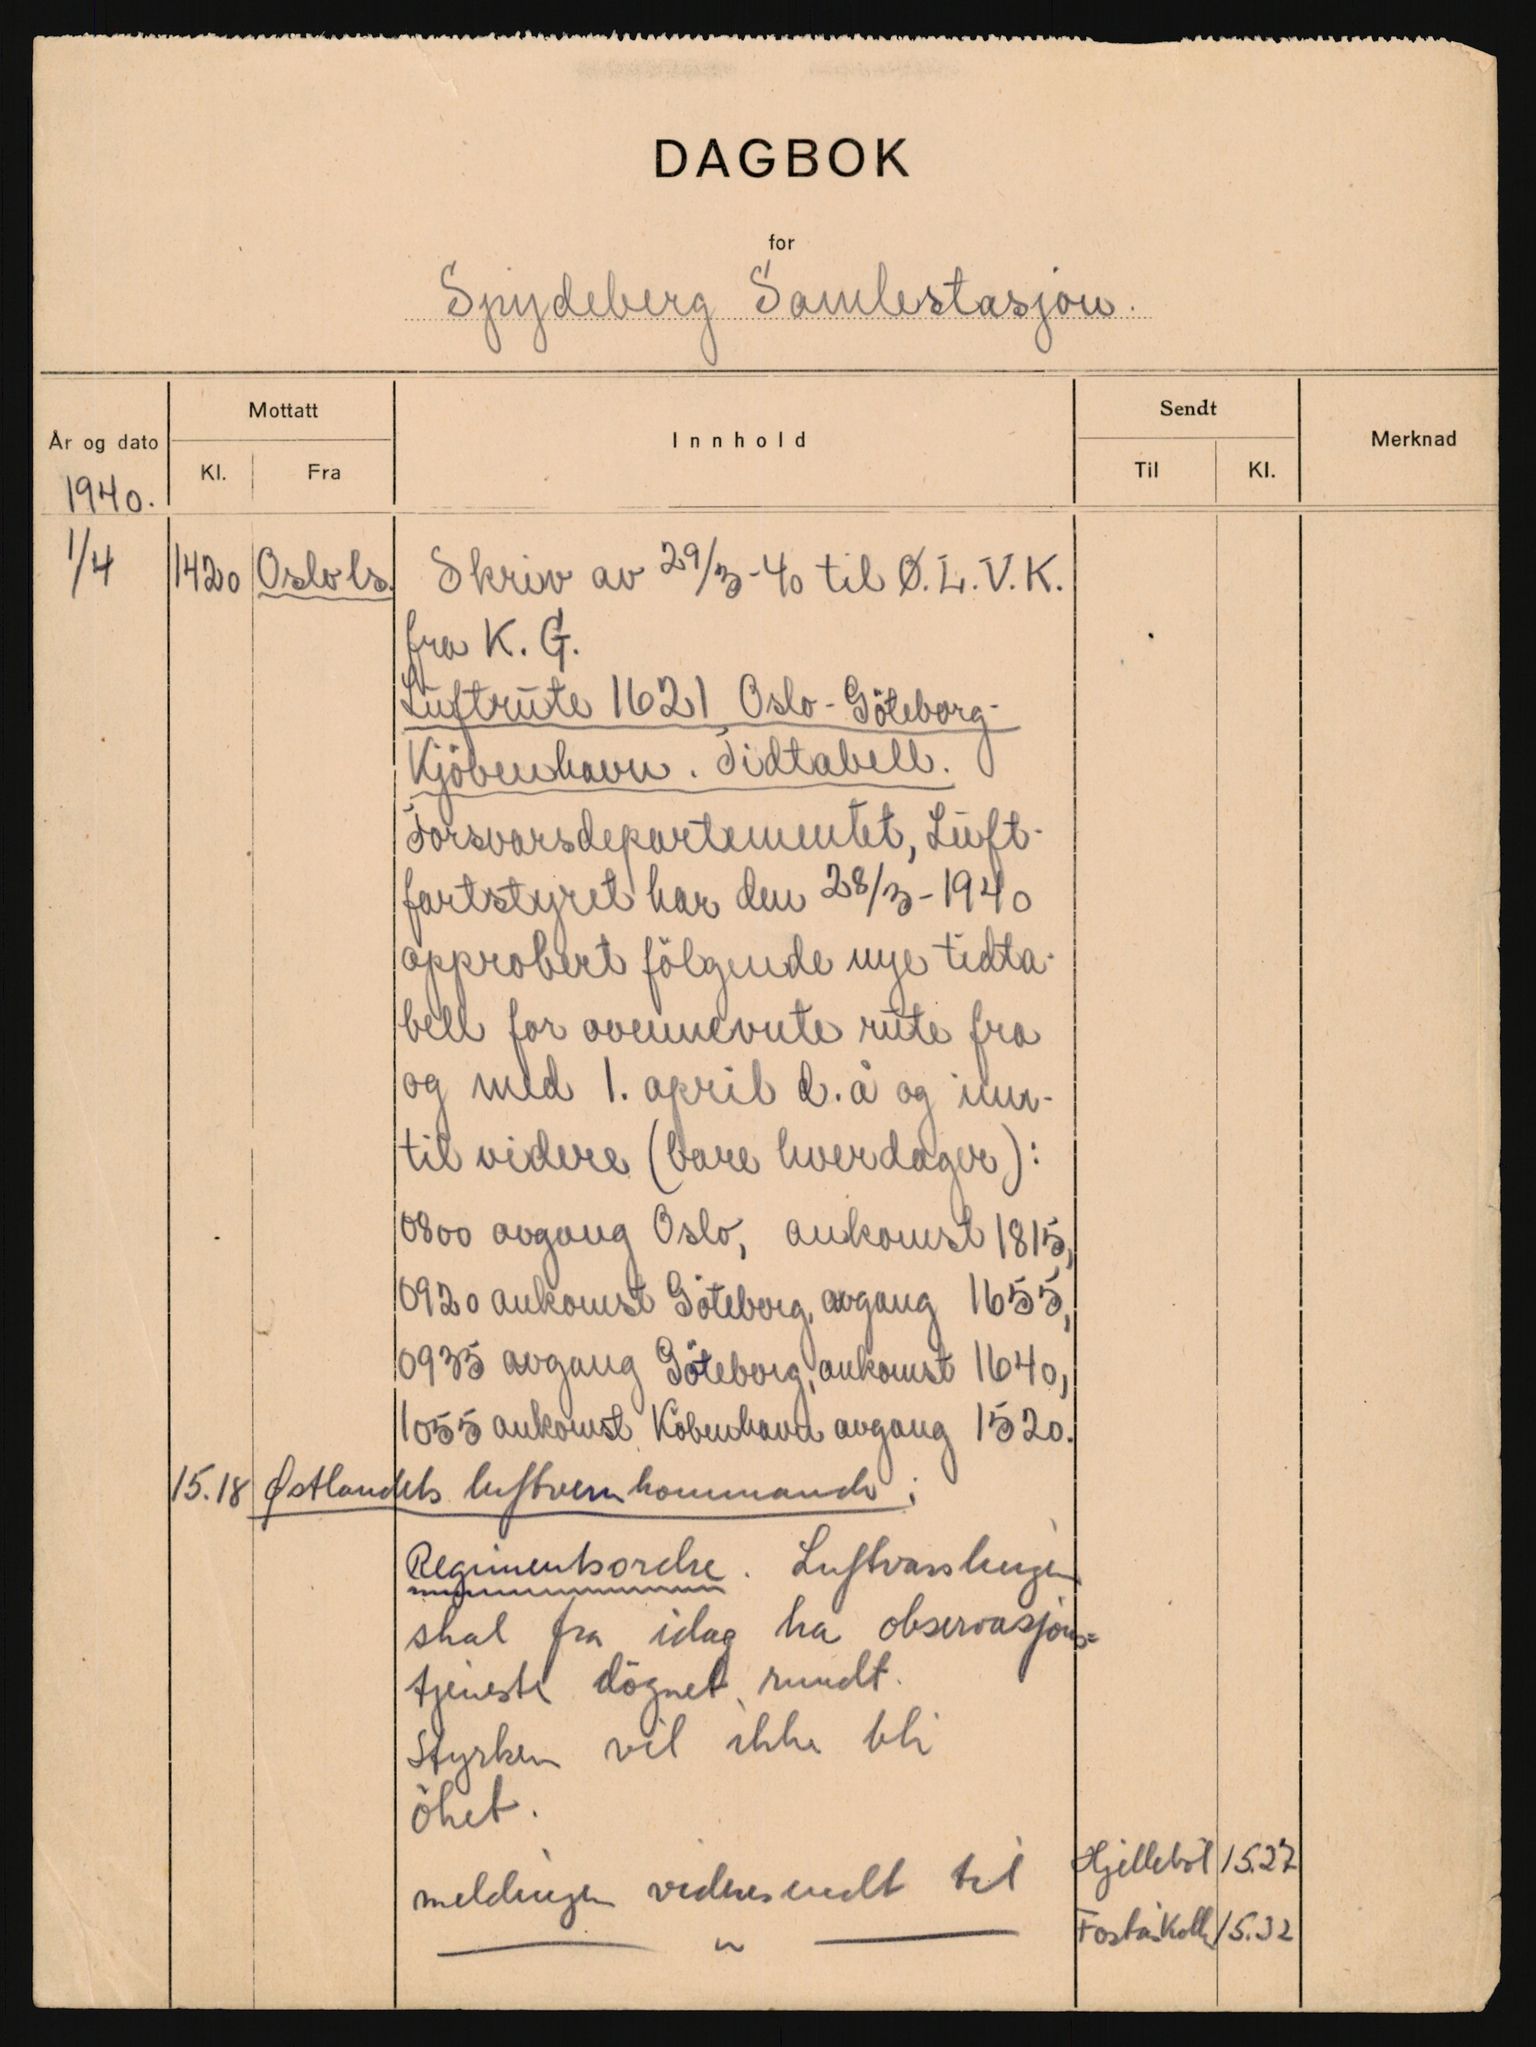 DAGBOK
for
Spydeberg Samlestasjon.
År og dato
Mottatt
Innhold
Sendt
Merknad
Kl.
Fra
Til
Kl.
1940.
1/4 1420 Oslo ls. Skriv av 29/3-40 til Ø.L.V.K.
fra K.G.
Luftrute 1621 Oslo-Göteborg-
Kjöbenhavn. Tidtabell.
Forsvarsdepartementet, Luft-
fartstyret har den 28/3-1940
approbert fölgende nye tidta-
bell for ovennevnte rute fra
og med 1. april d.å og inn-
til videre (bare hverdager):
0800 avgang Oslo, ankomst 1815,
0920 ankomst Göteborg, avgang 1655,
0935 avgang Göteborg, ankomst 1640,
1055 ankomst Köbenhavn avgang 1520.
15.18 Østlandets luftvernkommando:
Regimentsordre. Luftvasslingen
skal fra idag ha observasjons=
tjeneste dögnet rundt.
Styrken vil ikke bli
öket.
meldingen videresendt til Hjelleböl 15.27
— " — Foståskolle 15.32